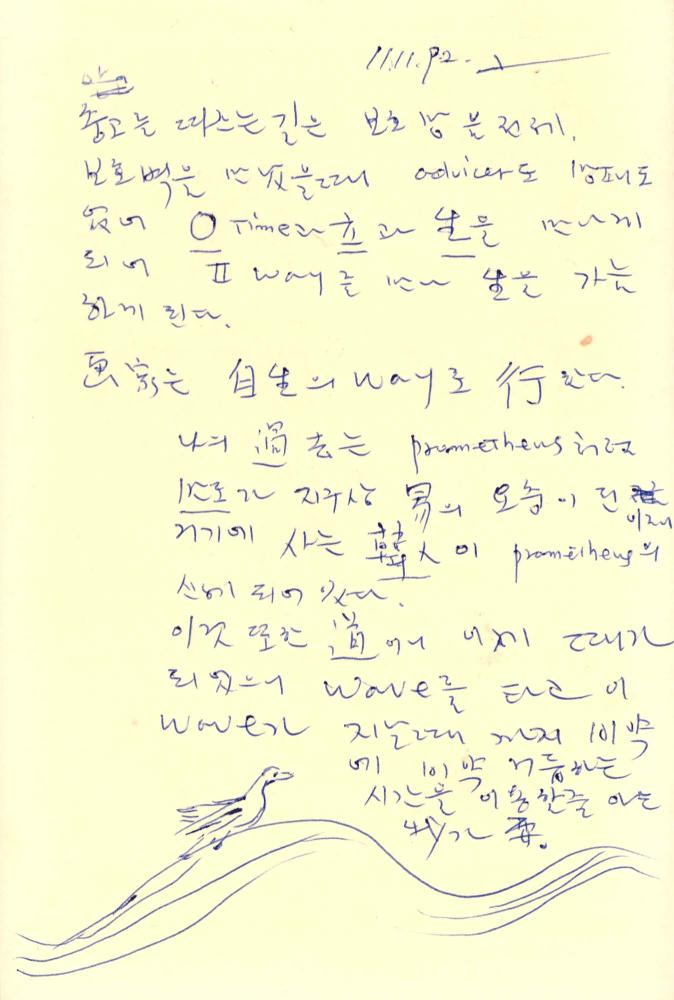 11.11.92.
좋고 는 따스는 길은 보호 망 을 전제.
보호벽을 만났을때 advicer도 방패도
없어 O Time과 초 과 生을 만나게
되어 II way를 만나 生을 가능
하게 된다.
画家는 自生의 way로 行 한다.
나의 過去는 prometheus처럼
지구상 의 모습이 된 이제
거기에 사는 韓人이 prometheus의
신세 되어 있다.
이것 또한 道에서 이제 때가
되었으니 wave를 타고 이
wave가 지날때 까지 비약
에 비약 거듭하는
시간을 이용할줄 아는
가 要.